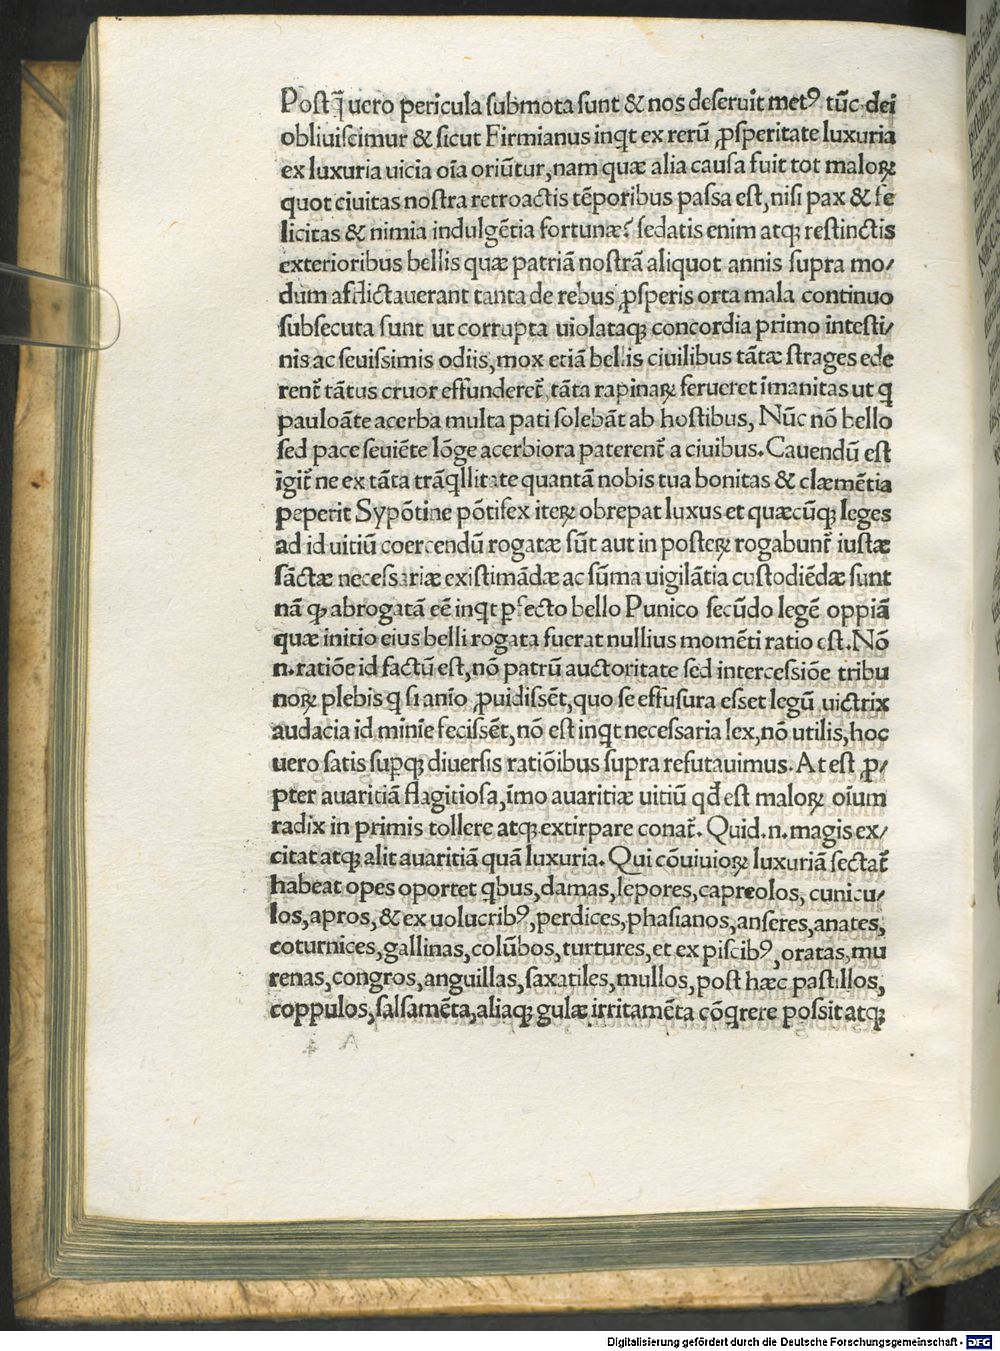 Postq̄ uero pericula submota sunt & nos deseruit metꝰ tūc dei
obliuiscimur & sicut Firmianus inqt ex rerū ꝓsperitate luxuria
ex luxuria uicia oīa oriūtur, nam quæ alia causa fuit tot maloꝝ
quot ciuitas nostra retroactis tēporibus passa est, nisi pax & fe
licitas & nimia indulgētia fortunæ? sedatis enim atqꝫ restinctis
exterioribus bellis quæ patriā nostrā aliquot annis supra mo/
dum afflictauerant tanta de rebus ꝓsperis orta mala continuo
subsecuta sunt ut corrupta uiolataqꝫ concordia primo intesti/
nis ac seuissimis odiis, mox etiā bellis ciuilibus tātæ strages ede
rent᷑ tātus cruor effunderet᷑, tāta rapinaꝝ ferueret īmanitas ut q
pauloāte acerba multa pati solebāt ab hostibus, Nūc nō bello
sed pace seuiēte lōge acerbiora paterent᷑ a ciuibus. Cauendū est
īgit᷑ ne ex tāta trāqllitate quantā nobis tua bonitas & clæmētia
peperit Sypōtine pōtifex iteꝝ obrepat luxus et quæcūqꝫ leges
ad id uitiū coercendū rogatæ sūt aut in posteꝝ rogabunt᷑ iustæ
sāctæ necessariæ existimādæ ac sūma uigilātia custodiēdæ sunt
nā qꝫ abrogatā eē inqt ꝓfecto bello Punico secūdo legē oppiā
quæ initio eius belli rogata fuerat nullius momēti ratio est. Nō
.n. ratiōe id factū est, nō patrū auctoritate sed intercessiōe tribu
noꝝ plebis q si anīo ꝓuidissēt, quo se effusura esset legū uictrix
audacia id minīe fecissēt, nō est inqt necessaria lex, nō utilis, hoc
uero satis supqꝫ diuersis ratiōibus supra refutauimus. At est ꝓ/
pter auaritiā flagitiosa, īmo auaritiæ uitiū qđ est maloꝝ oīum
radix in primis tollere atqꝫ extirpare conat᷑. Quid .n. magis ex/
citat atqꝫ alit auaritiā quā luxuria. Qui cōuiuioꝝ luxuriā sectat᷑
habeat opes oportet qbus, damas, lepores, capreolos, cunicu/
los, apros, & ex uolucribꝰ, perdices, phasianos, anseres, anates,
coturnices, gallinas, colūbos, turtures, et ex piscibꝰ, oratas, mu
renas, congros, anguillas, saxatiles, mullos, post hæc pastillos,
coppulos, salsamēta, aliaqꝫ gulæ irritamēta cōqrere possit atqꝫ
Digitalisierung gefördert durch die Deutsche Forschungsgemeinschaft - DFG